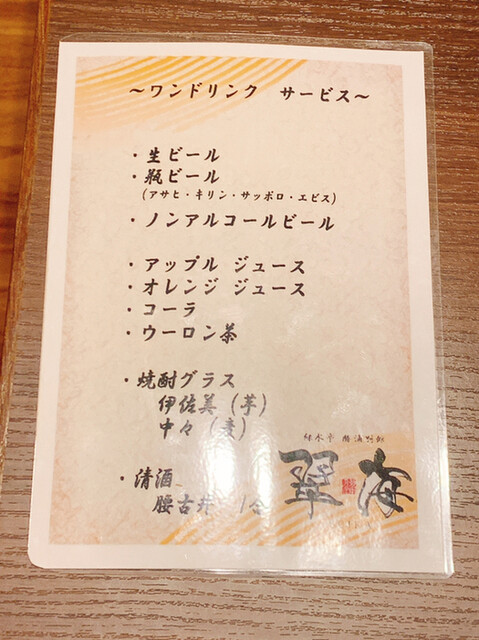 ～ワンドリンク サービス～
・生ビール
・瓶ビール
(アサヒ・キリン・サッポロ・エビス)
・ノンアルコールビール
・アップル ジュース
・オレンジ ジュース
・コーラ
・ウーロン茶
・焼酎グラス
伊佐美(芋)
中々(麦)
・清酒
腰古井 1合
翠海